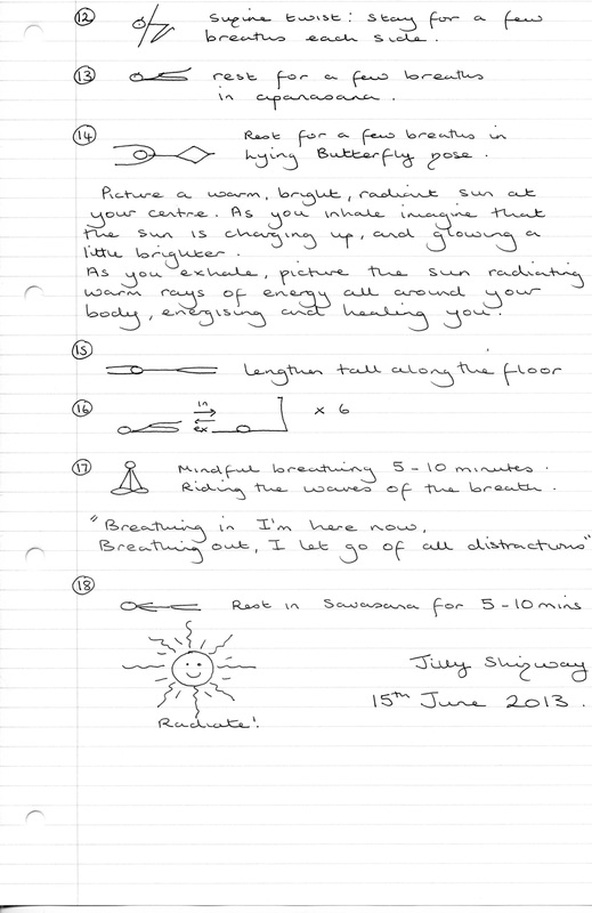 12 Supine twist: stay for a few
breaths each side.
13 rest for a few breaths
in apanasana.
14 Rest for a few breaths in
Lying Butterfly pose.
Picture a warm, bright, radiant sun at
your centre. As you inhale imagine that
the sun is charging up, and glowing a
little brighter.
As you exhale, picture the sun radiating
warm rays of energy all around your
body, energising and healing you.
15
Lengthen tall along the floor
16 in
ex x 6
17 Mindful breathing 5-10 minutes.
Riding the waves of the breath.
"Breathing in I'm here now,
Breathing out, I let go of all distractions"
18
Rest in Savasana for 5-10 mins
Jilly Shipway
15th June 2013.
Radiate!